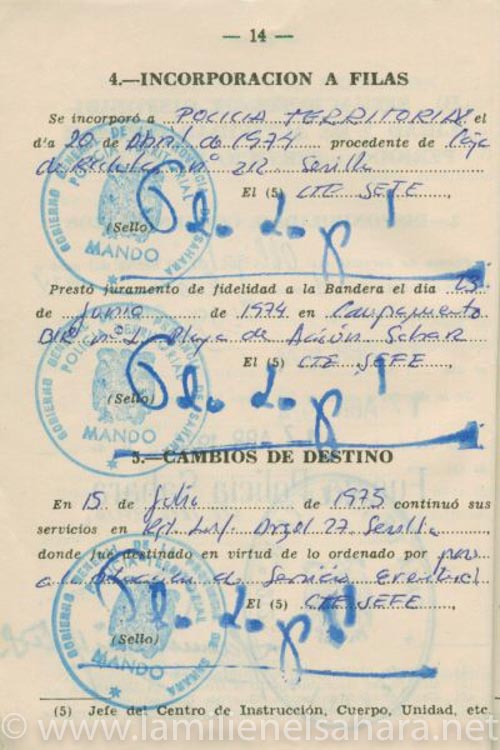 — 14 —
4.—INCORPORACION A FILAS
Se incorporó a POLICIA TERRITORIAL el
día 20 de Abril de 1974 procedente de Caja
de Recluta nº 212 Sevilla
El (5) CTE JEFE,
(Sello)
GOBIERNO GENERAL DE LA PROVINCIA DE SAHARA
POLICIA TERRITORIAL
MANDO
Prestó juramento de fidelidad a la Bandera el día 23
de Junio de 1974 en Campamento
BIR nº 1 Playa de Aaiún Sahara
El (5) CTE JEFE,
(Sello)
GOBIERNO GENERAL DE LA PROVINCIA DE SAHARA
POLICIA TERRITORIAL
MANDO
5.—CAMBIOS DE DESTINO
En 15 de Julio de 1975 continuó sus
servicios en Inf. Argel 27 Sevilla
donde fué destinado en virtud de lo ordenado por pase
a la situación de Servicio Eventual
El (5) CTE JEFE,
(Sello)
GOBIERNO GENERAL DE LA PROVINCIA DE SAHARA
POLICIA TERRITORIAL
MANDO
(5) Jefe de: Centro de Instrucción, Cuerpo, Unidad, etc.
© www.lamilienelsahara.net